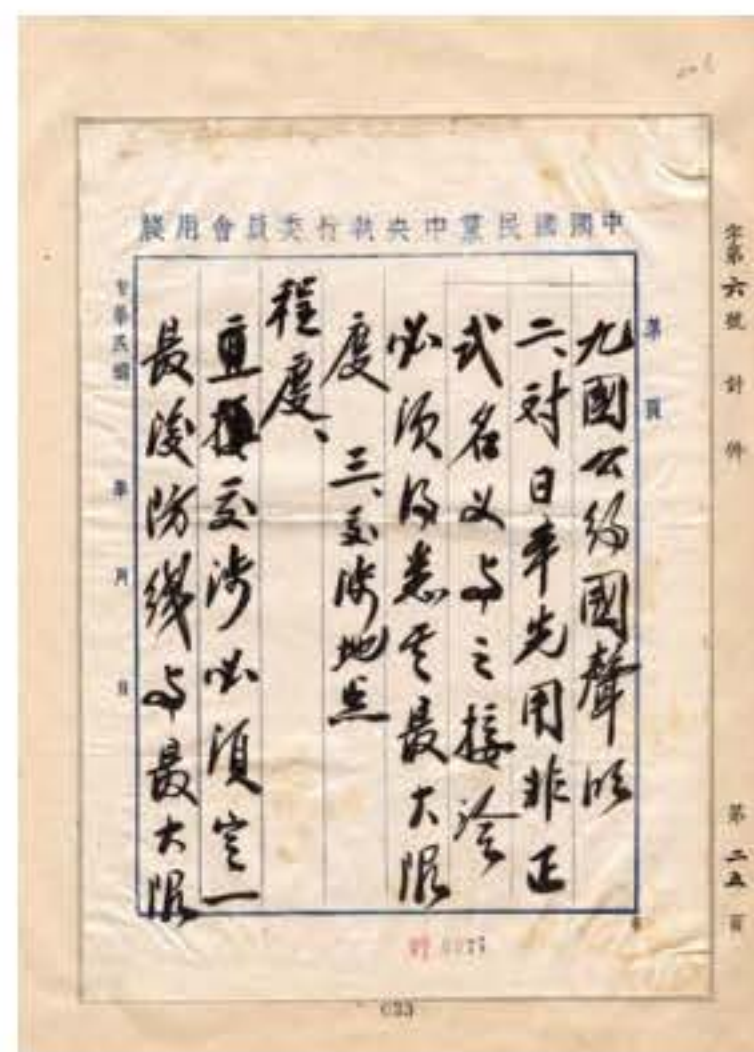 中國國民黨中央執行委員會用牋
第 頁
九國公約國聲明
二、对日本先用非正
式名义与之接洽
必须得悉其最大限
度 三、交涉地点
程度、
直接交涉必须定一
最後防线与最大限
中華民國 年 月 日
字第六號 計 件
第二五頁
033